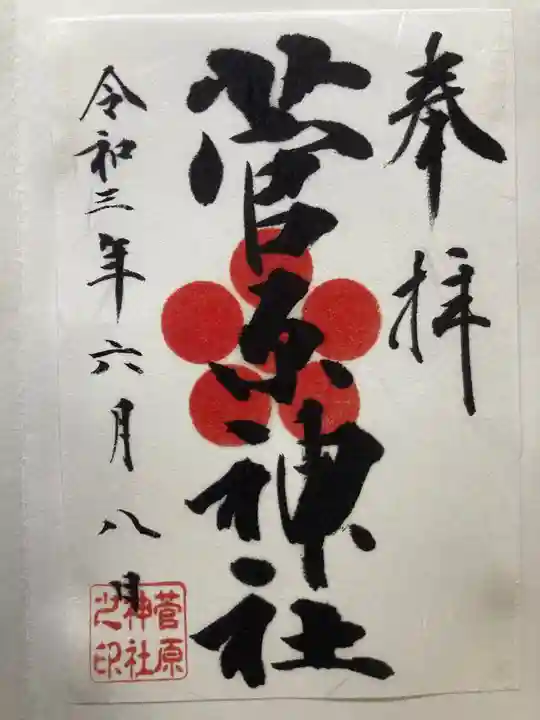 奉拝
菅原神社
令和三年六月八日
菅原
神社
之印